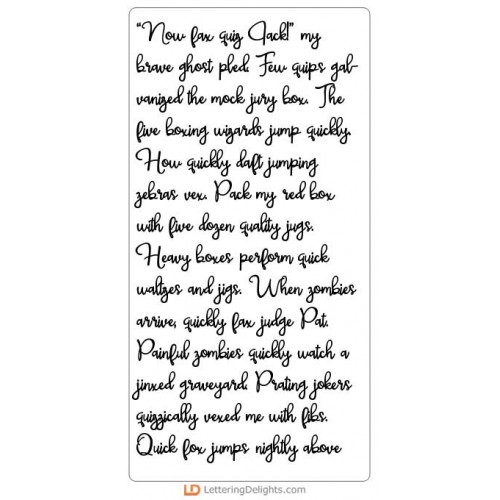 “Now fax quiz Jack!” my
brave ghost pled. Few quips gal-
vanized the mock jury box. The
five boxing wizards jump quickly.
How quickly daft jumping
zebras vex. Pack my red box
with five dozen quality jugs.
Heavy boxes perform quick
waltzes and jigs. When zombies
arrive, quickly fax judge Pat.
Painful zombies quickly watch a
jinxed graveyard. Prating jokers
quizzically vexed me with fibs.
Quick fox jumps nightly above
LD LetteringDelights.com